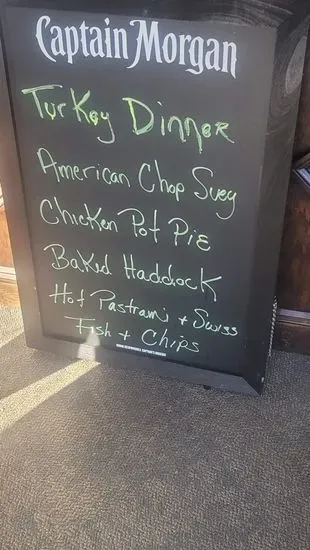 Captain Morgan
Turkey Dinner
American Chop Suey
Chicken Pot Pie
Baked Haddock
Hot Pastrami + Swiss
Fish + Chips